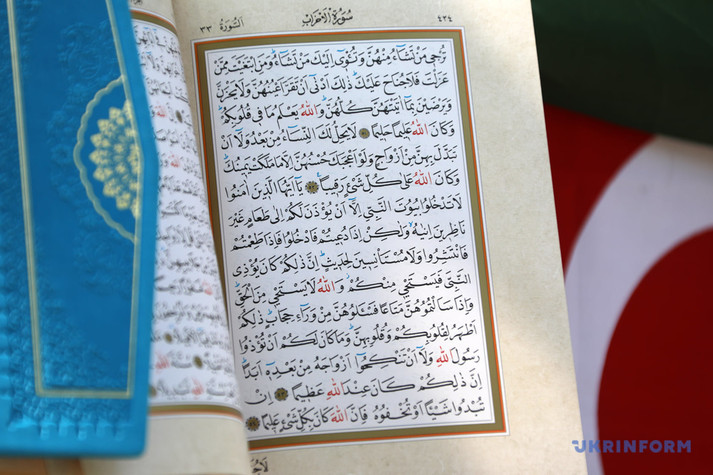 ٤٢٤ سُورَةُ الْاَحْزَابِ اَلسُّورَةُ ٣٣
تُرْجِي مَنْ تَشَٓاءُ مِنْهُنَّ وَتُـْٔوِٓي اِلَيْكَ مَنْ تَشَٓاءُ وَمَنِ ابْتَغَيْتَ مِمَّنْ
عَزَلْتَ فَلَا جُنَاحَ عَلَيْكَ ذٰلِكَ اَدْنٰٓى اَنْ تَقَرَّ اَعْيُنُهُنَّ وَلَا يَحْزَنَّ
وَيَرْضَيْنَ بِمَٓا اٰتَيْتَهُنَّ كُلُّهُنَّ وَاللّٰهُ يَعْلَمُ مَا فِي قُلُوبِكُمْ
وَكَانَ اللّٰهُ عَلِيمًا حَلِيمًا لَا يَحِلُّ لَكَ النِّسَٓاءُ مِنْ بَعْدُ وَلَٓا اَنْ
تَبَدَّلَ بِهِنَّ مِنْ اَزْوَاجٍ وَلَوْ اَعْجَبَكَ حُسْنُهُنَّ اِلَّا مَا مَلَكَتْ يَمِينُكَ
وَكَانَ اللّٰهُ عَلٰى كُلِّ شَيْءٍ رَقِيبًا يَٓا اَيُّهَا الَّذِينَ اٰمَنُوا
لَا تَدْخُلُوا بُيُوتَ النَّبِيِّ اِلَّٓا اَنْ يُؤْذَنَ لَكُمْ اِلٰى طَعَامٍ غَيْرَ
نَاظِرِينَ اِنٰيهُ وَلٰكِنْ اِذَا دُعِيتُمْ فَادْخُلُوا فَاِذَا طَعِمْتُمْ
فَانْتَشِرُوا وَلَا مُسْتَأْنِسِينَ لِحَدِيثٍ اِنَّ ذٰلِكُمْ كَانَ يُؤْذِي
النَّبِيَّ فَيَسْتَحْيِي مِنْكُمْ وَاللّٰهُ لَا يَسْتَحْيِي مِنَ الْحَقِّ
وَاِذَا سَاَلْتُمُوهُنَّ مَتَاعًا فَسْـَٔلُوهُنَّ مِنْ وَرَٓاءِ حِجَابٍ ذٰلِكُمْ
اَطْهَرُ لِقُلُوبِكُمْ وَقُلُوبِهِنَّ وَمَا كَانَ لَكُمْ اَنْ تُؤْذُوا
رَسُولَ اللّٰهِ وَلَٓا اَنْ تَنْكِحُٓوا اَزْوَاجَهُ مِنْ بَعْدِهِ اَبَدًا
اِنَّ ذٰلِكُمْ كَانَ عِنْدَ اللّٰهِ عَظِيمًا اِنْ
تُبْدُوا شَيْـًٔا اَوْ تُخْفُوهُ فَاِنَّ اللّٰهَ كَانَ بِكُلِّ شَيْءٍ عَلِيمًا
UKRINFORM